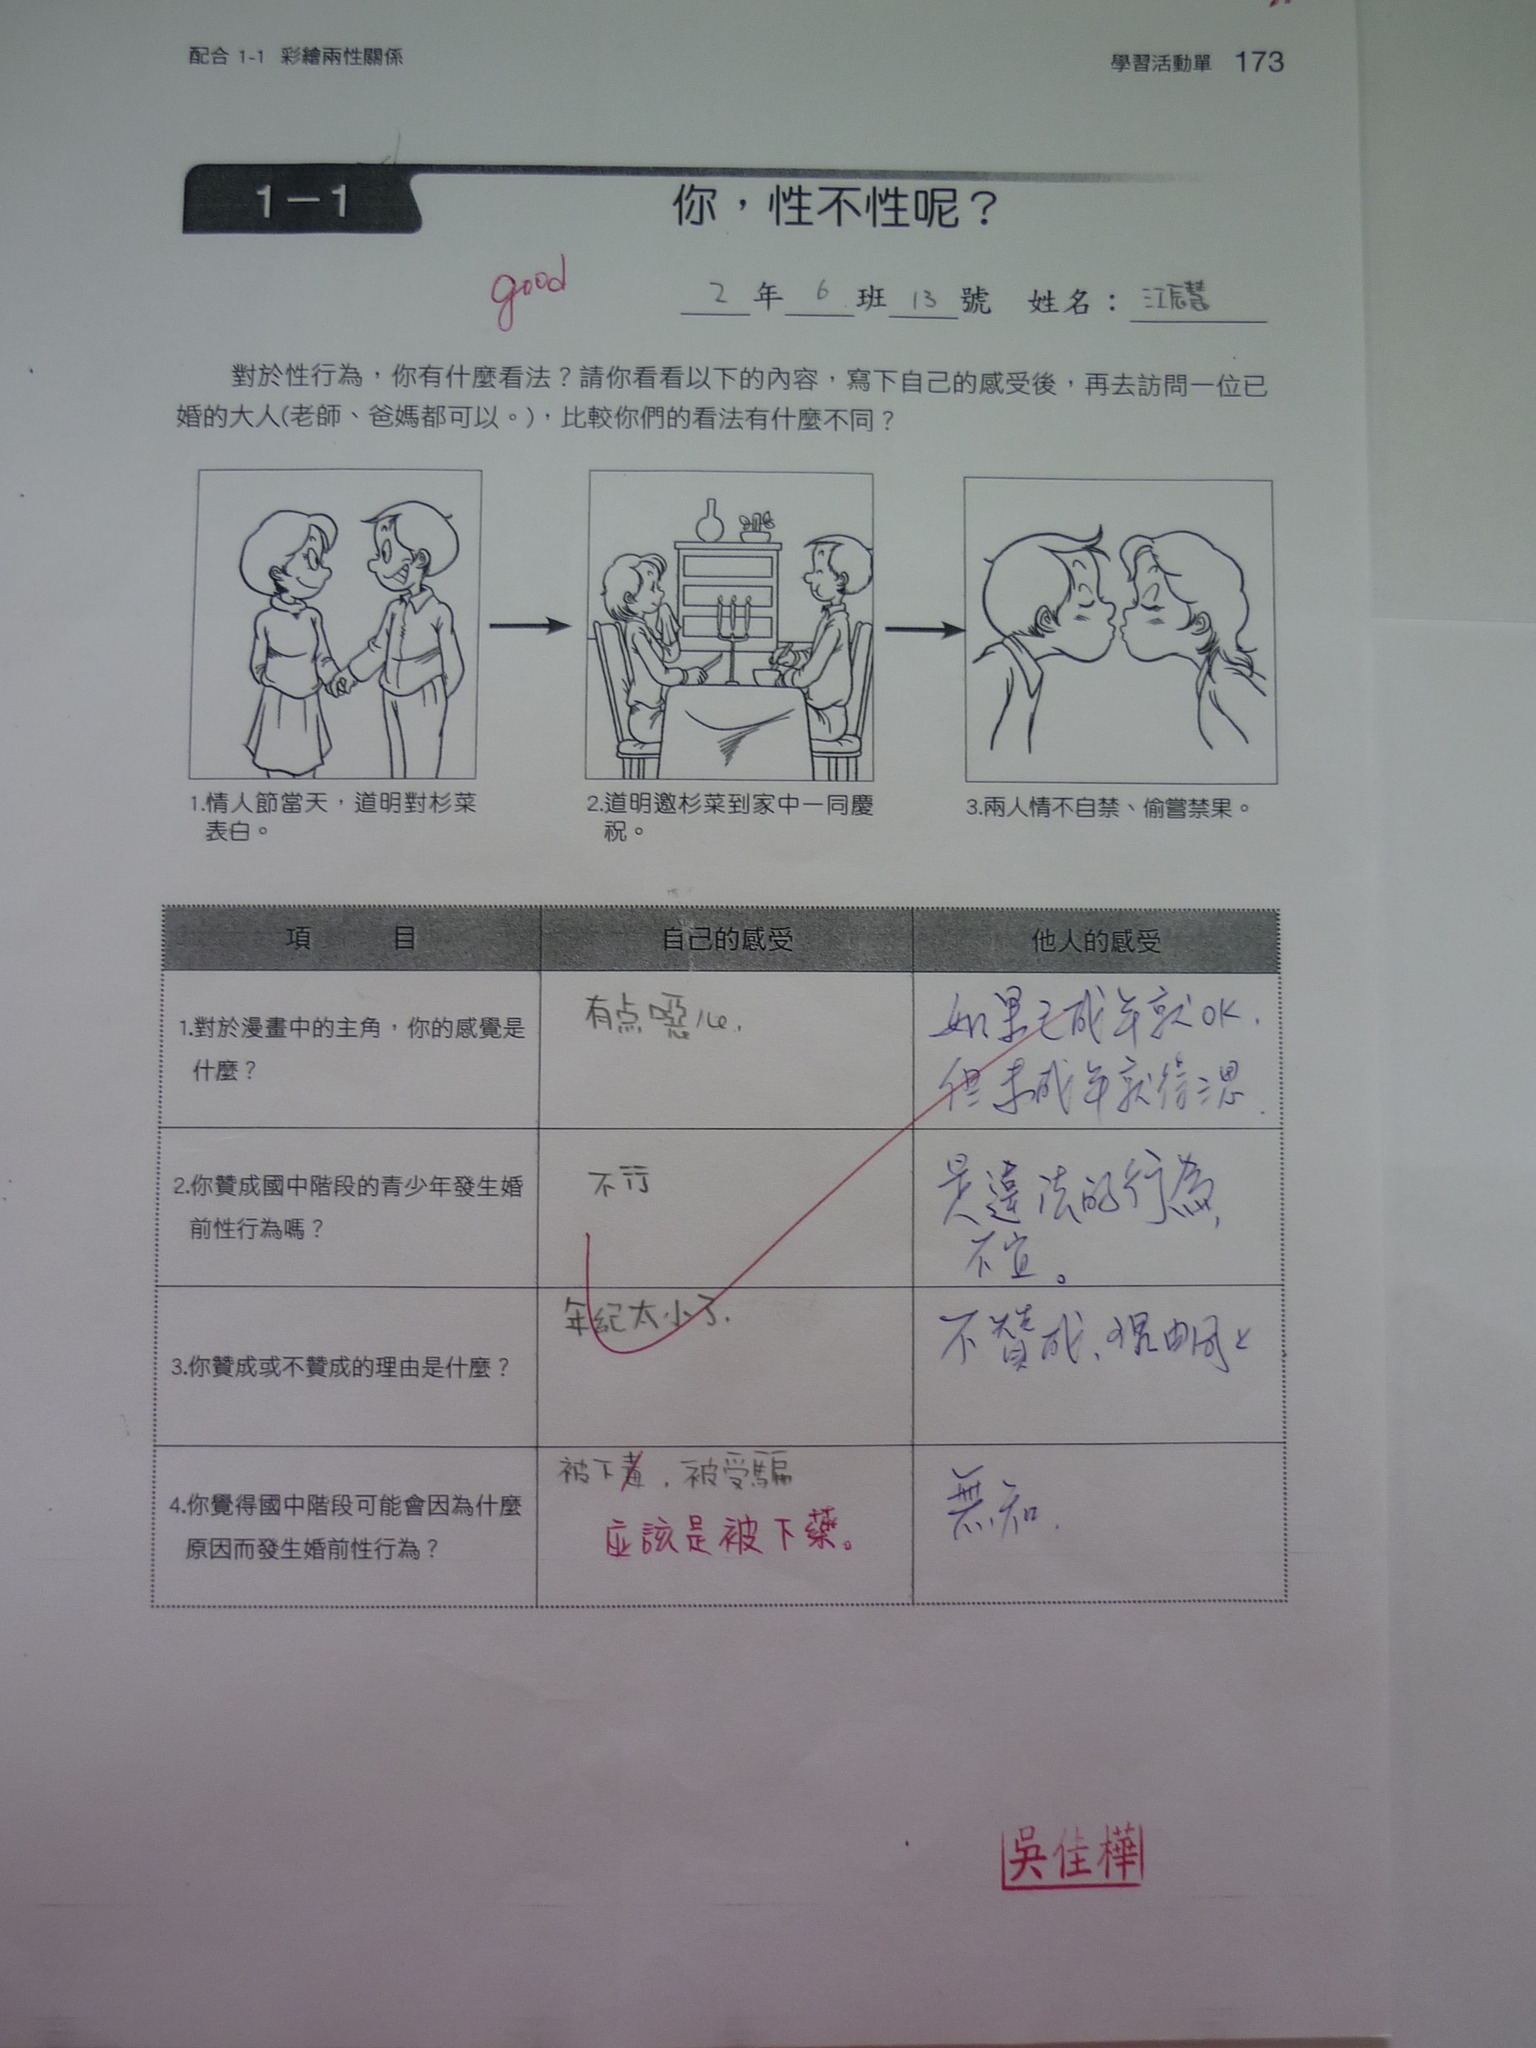 配合 1-1 彩繪兩性關係
學習活動單 173
1－1
你，性不性呢？
good
2年6班13號 姓名：江辰慧
對於性行為，你有什麼看法？請你看看以下的內容，寫下自己的感受後，再去訪問一位已
婚的大人(老師、爸媽都可以。)，比較你們的看法有什麼不同？
1.情人節當天，道明對杉菜
表白。
2.道明邀杉菜到家中一同慶
祝。
3.兩人情不自禁、偷嘗禁果。
項 目
自己的感受
他人的感受
1.對於漫畫中的主角，你的感覺是
什麼？
有点噁心.
如果已成年就OK.
但未成年就待三思.
2.你贊成國中階段的青少年發生婚
前性行為嗎？
不行
是違法的行為,
不宜。
3.你贊成或不贊成的理由是什麼？
年紀太小了.
不贊成、理由同上
4.你覺得國中階段可能會因為什麼
原因而發生婚前性行為？
被下毒. 被受騙
应該是被下藥。
無知.
吳佳樺